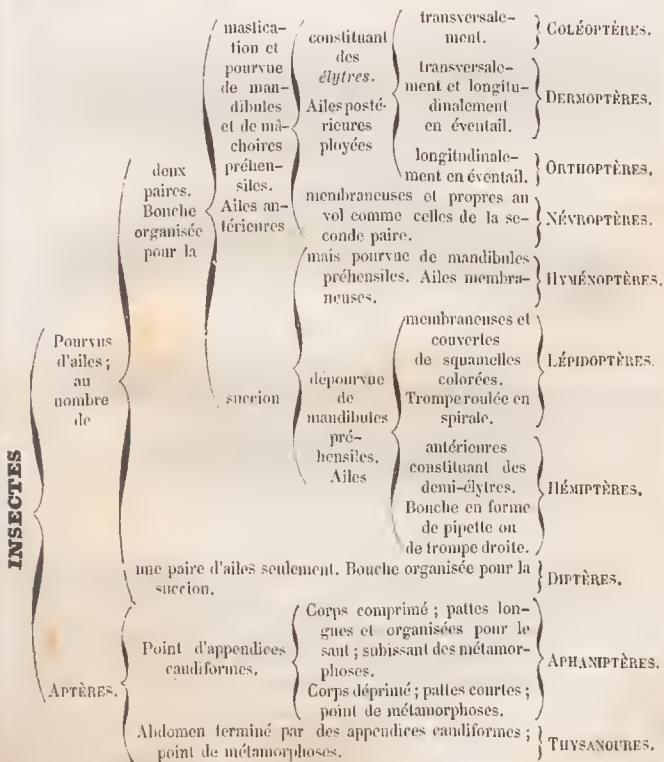 INSECTES
Pourvus
d'ailes ;
au
nombre
de
deux
paires.
Bouche
organisée
pour la
mastica-
tion et
pourvue
de man-
dibules
et de mâ-
choires
préhen-
siles.
Ailes an-
térieures
constituant
des
élytres.
Ailes posté-
rieures
ployées
transversale-
ment.
COLÉOPTÈRES.
transversale-
ment et longitu-
dinalement
en éventail.
DERMOPTÈRES.
longitudinale-
ment en éventail.
ORTHOPTÈRES.
membraneuses et propres au
vol comme celles de la se-
conde paire.
NÉVROPTÈRES.
succion
mais pourvue de mandibules
préhensiles. Ailes membra-
neuses.
HYMÉNOPTÈRES.
dépourvue
de
mandibules
pré-
hensiles.
Ailes
membraneuses et
couvertes
de squamelles
colorées.
Trompe roulée en
spirale.
LÉPIDOPTÈRES.
antérieures
constituant des
demi-élytres.
Bouche en forme
de pipette ou
de trompe droite.
HÉMIPTÈRES.
une paire d'ailes seulement. Bouche organisée pour la
succion.
DIPTÈRES.
APTÈRES.
Point d'appendices
caudiformes.
Corps comprimé ; pattes lon-
gues et organisées pour le
saut ; subissant des métamor-
phoses.
Corps déprimé ; pattes courtes ;
point de métamorphoses.
APHANIPTÈRES.
Abdomen terminé par des appendices caudiformes ;
point de métamorphoses.
THYSANOURES.